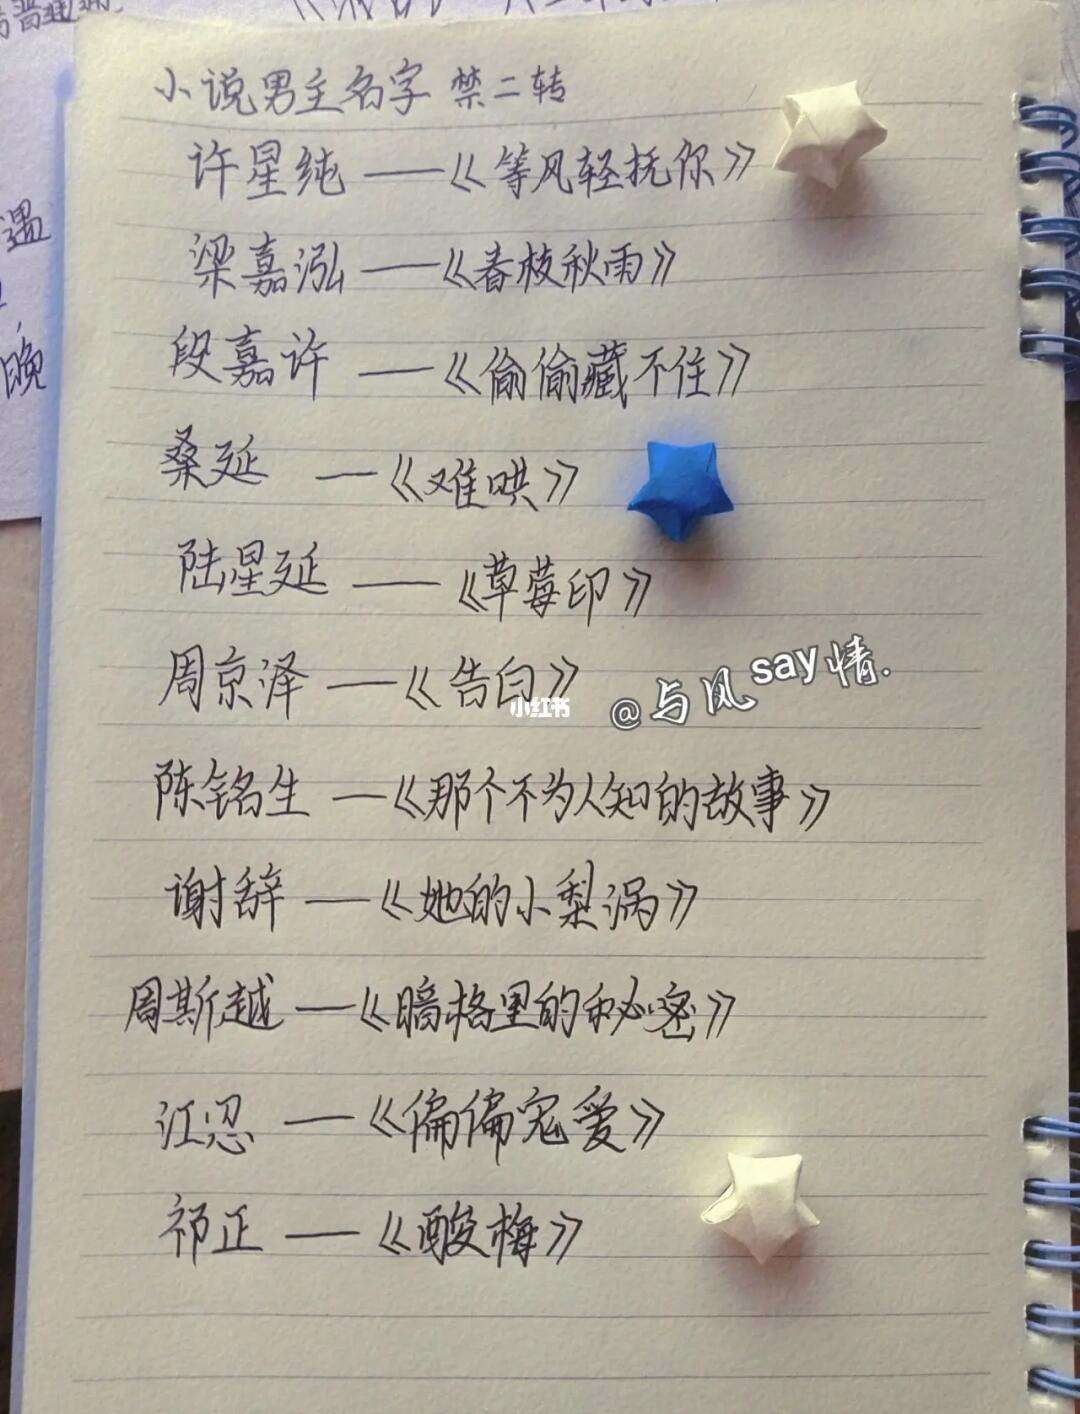 小说男主名字 禁二转
许星纯——《等风轻抚你》
梁嘉泓——《春枝秋雨》
段嘉许——《偷偷藏不住》
桑延—《难哄》
陆星延——《草莓印》
周京泽——《告白》
小红书
@与风say情.
陈铭生—《那个不为人知的故事》
谢辞——《她的小梨涡》
周斯越—《暗格里的秘密》
江忍—《偏偏宠爱》
祁正——《酸梅》
遇
晚